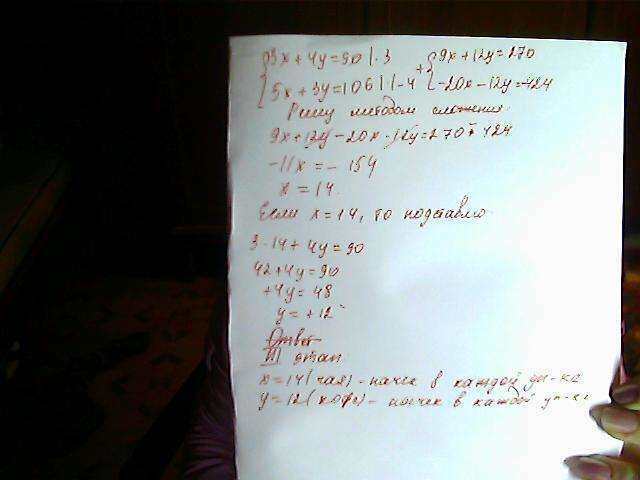 3x + 4y = 90 | · 3 + 9x + 12y = 270
5x + 3y = 106 | · -4 -20x - 12y = -424
Решу методом сложения.
9x + 12y - 20x - 12y = 270 - 424
-11x = - 154
x = 14.
Если x = 14, то подставлю.
3 · 14 + 4y = 90
42 + 4y = 90
+4y = 48
y = +12
Ответ
III этап.
x = 14 (чая) - пачек в каждой уп-ке
y = 12 (кофе) - пачек в каждой уп-ке